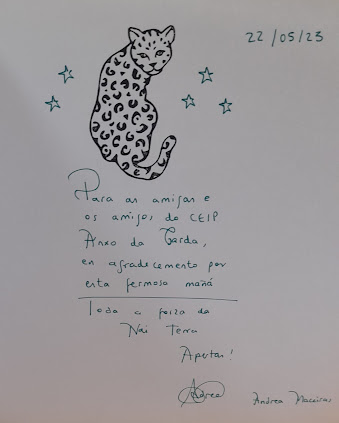 22/05/23
Para as amigas e
os amigos do CEIP
Anxo da Garda,
en agradecemento por
esta fermosa mañá
Toda a forza da
Nai Terra
Apertas!
Andrea
Andrea Maceiras